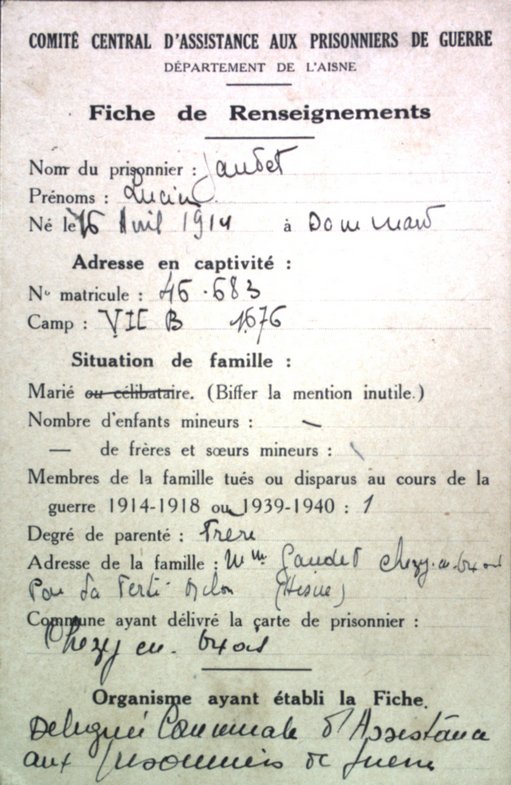 COMITÉ CENTRAL D'ASSISTANCE AUX PRISONNIERS DE GUERRE
DÉPARTEMENT DE L'AISNE
Fiche de Renseignements
Nom du prisonnier : Jaudet
Prénoms : Lucien
Né le 16 Avril 1914 à Dommard
Adresse en captivité :
No matricule : 46.683
Camp : VII B 1676
Situation de famille :
Marié ou célibataire. (Biffer la mention inutile.)
Nombre d'enfants mineurs : —
— de frères et sœurs mineurs : \
Membres de la famille tués ou disparus au cours de la
guerre 1914-1918 ou 1939-1940 : 1
Degré de parenté : Frère
Adresse de la famille : Mme Gaudet Chezy-en-Orxois
Par La Ferté Milon (Aisne)
Commune ayant délivré la carte de prisonnier :
Chezy en-Orxois
Organisme ayant établi la Fiche.
Délégué Communale d'Assistance
aux prisonniers de guerre